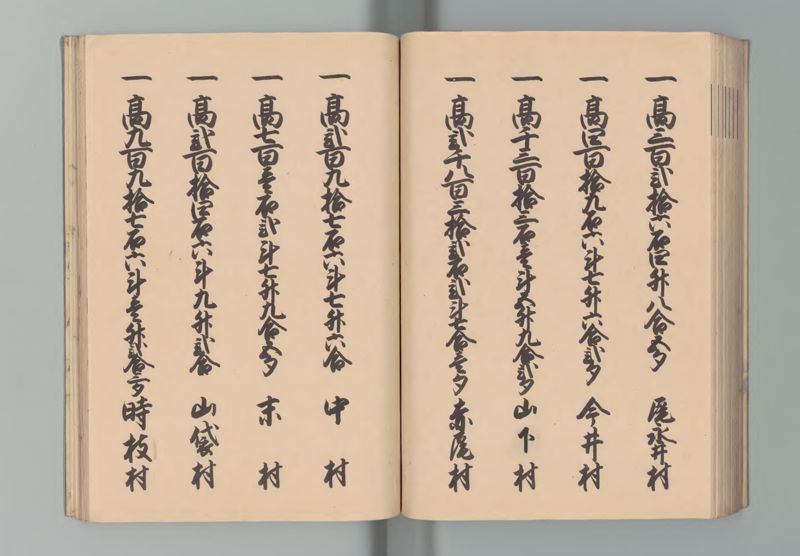 一 高三百弐拾六石四升八合五夕 尾永井村
一 高四百拾九石六斗七升六合弐夕 今井村
一 高千三百拾三石壱斗五升九合弐夕 山下村
一 高弐千八百三拾弐石弐斗七合壱夕 赤尾村
一 高弐百九拾七石六斗七升六合 中村
一 高七百壱石弐斗七升九合五夕 末村
一 高弐百拾四石六斗九升弐合 山袋村
一 高九百九拾七石六斗壱升弐合三夕 時枝村